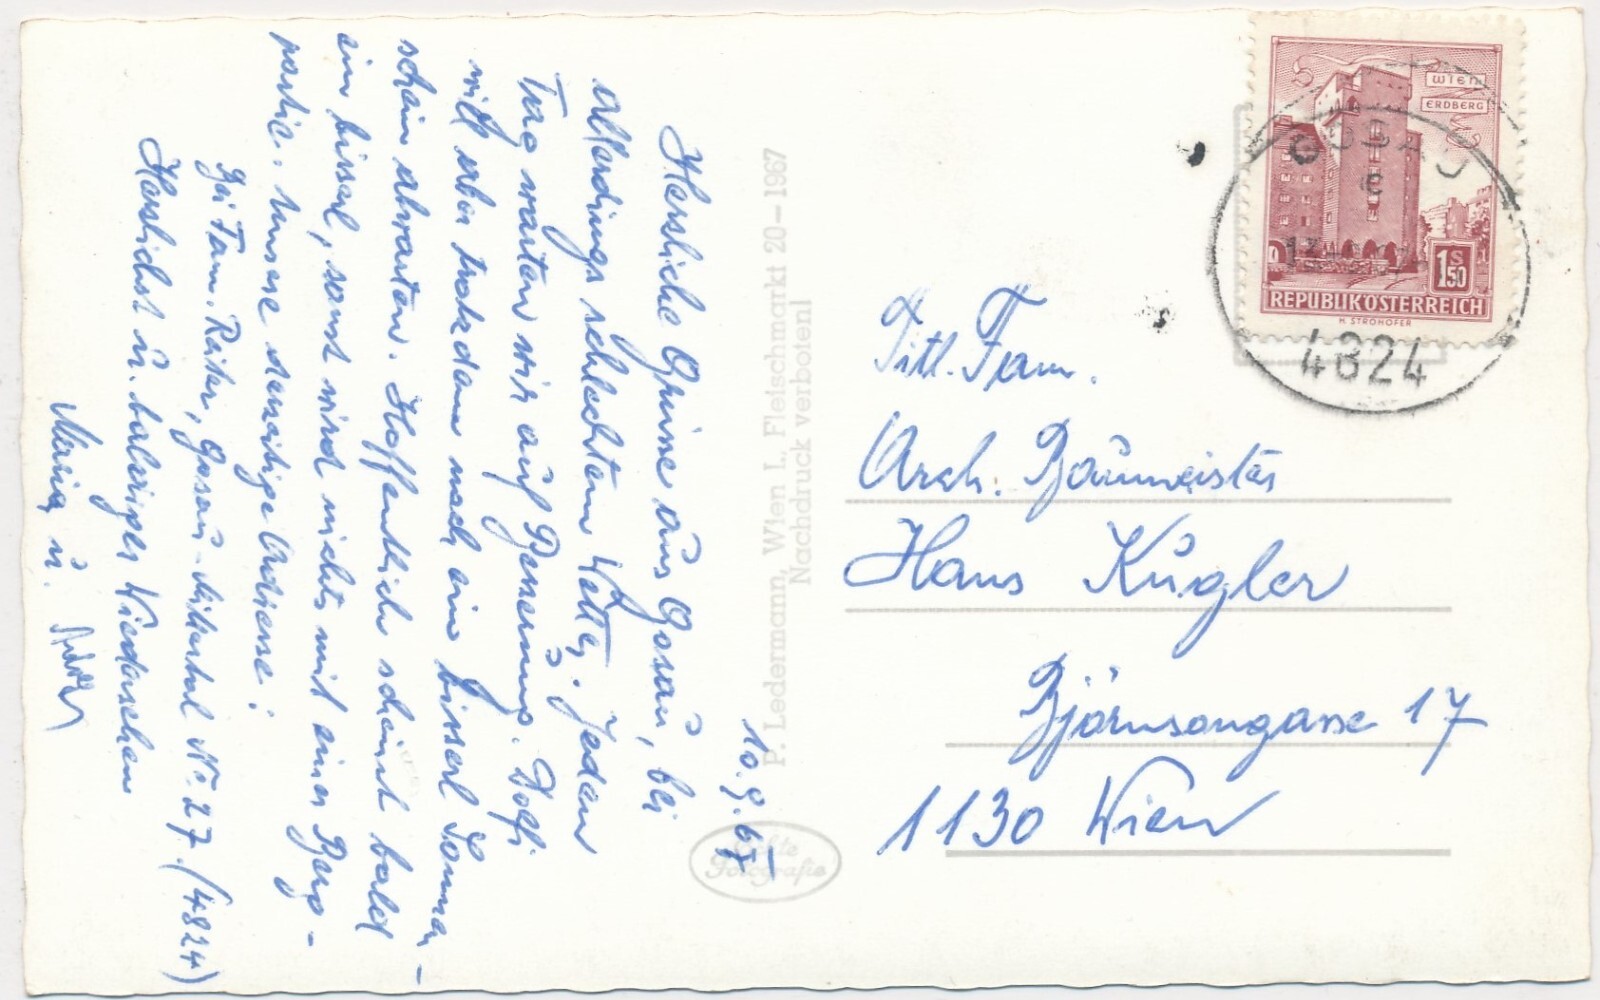 10.9.67
Herzliche Grüsse aus Gosau, bei
allerdings schlechtem Wetter. Jeden
Tag warten wir auf Besserung. Dolfi
will aber trotzdem noch ein bisserl Sonnen-
schein abwarten. Hoffentlich scheint bald
ein bisserl, sonst wird nichts mit einer Berg-
partie. Unsere derzeitige Adresse:
Bei Fam. Reiter, Gosau-Mittertal Nr. 27. (4824)
Herzlichst u. baldiges Wiedersehen
Maria u.
P. Ledermann, Wien I., Fleischmarkt 20–1967
Nachdruck verboten!
Echte
Fotografie
WIEN
ERDBERG
1 S 50
REPUBLIK ÖSTERREICH
H. STROHOFER
GOSAU
c
4824
Titl. Fam.
Arch. Baumeister
Hans Kugler
Björnsongasse 17
1130 Wien